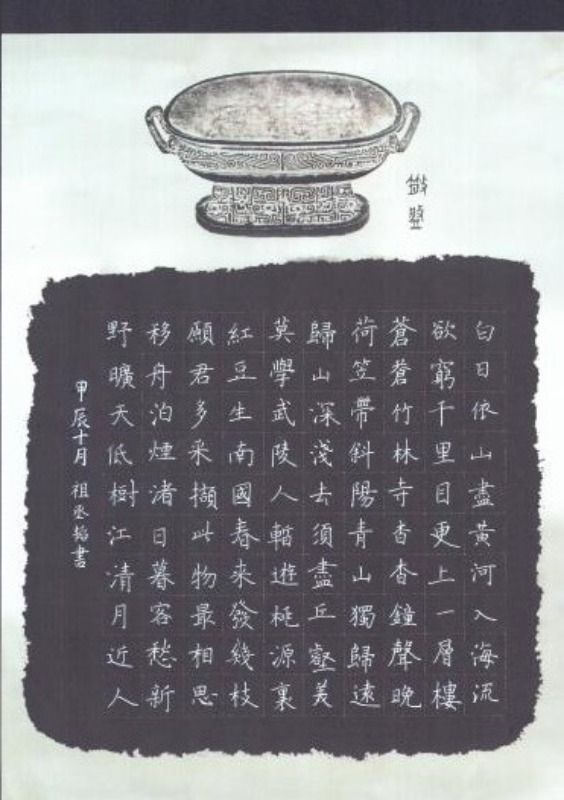 白日依山盡黃河入海流
欲窮千里目更上一層樓
蒼蒼竹林寺杳杳鐘聲晚
荷笠帶斜陽青山獨歸遠
歸山深淺去須盡丘壑美
莫學武陵人暫遊桃源裏
紅豆生南國春來發幾枝
願君多采擷此物最相思
移舟泊煙渚日暮客愁新
野曠天低樹江清月近人
甲辰十月 祖丞韜書